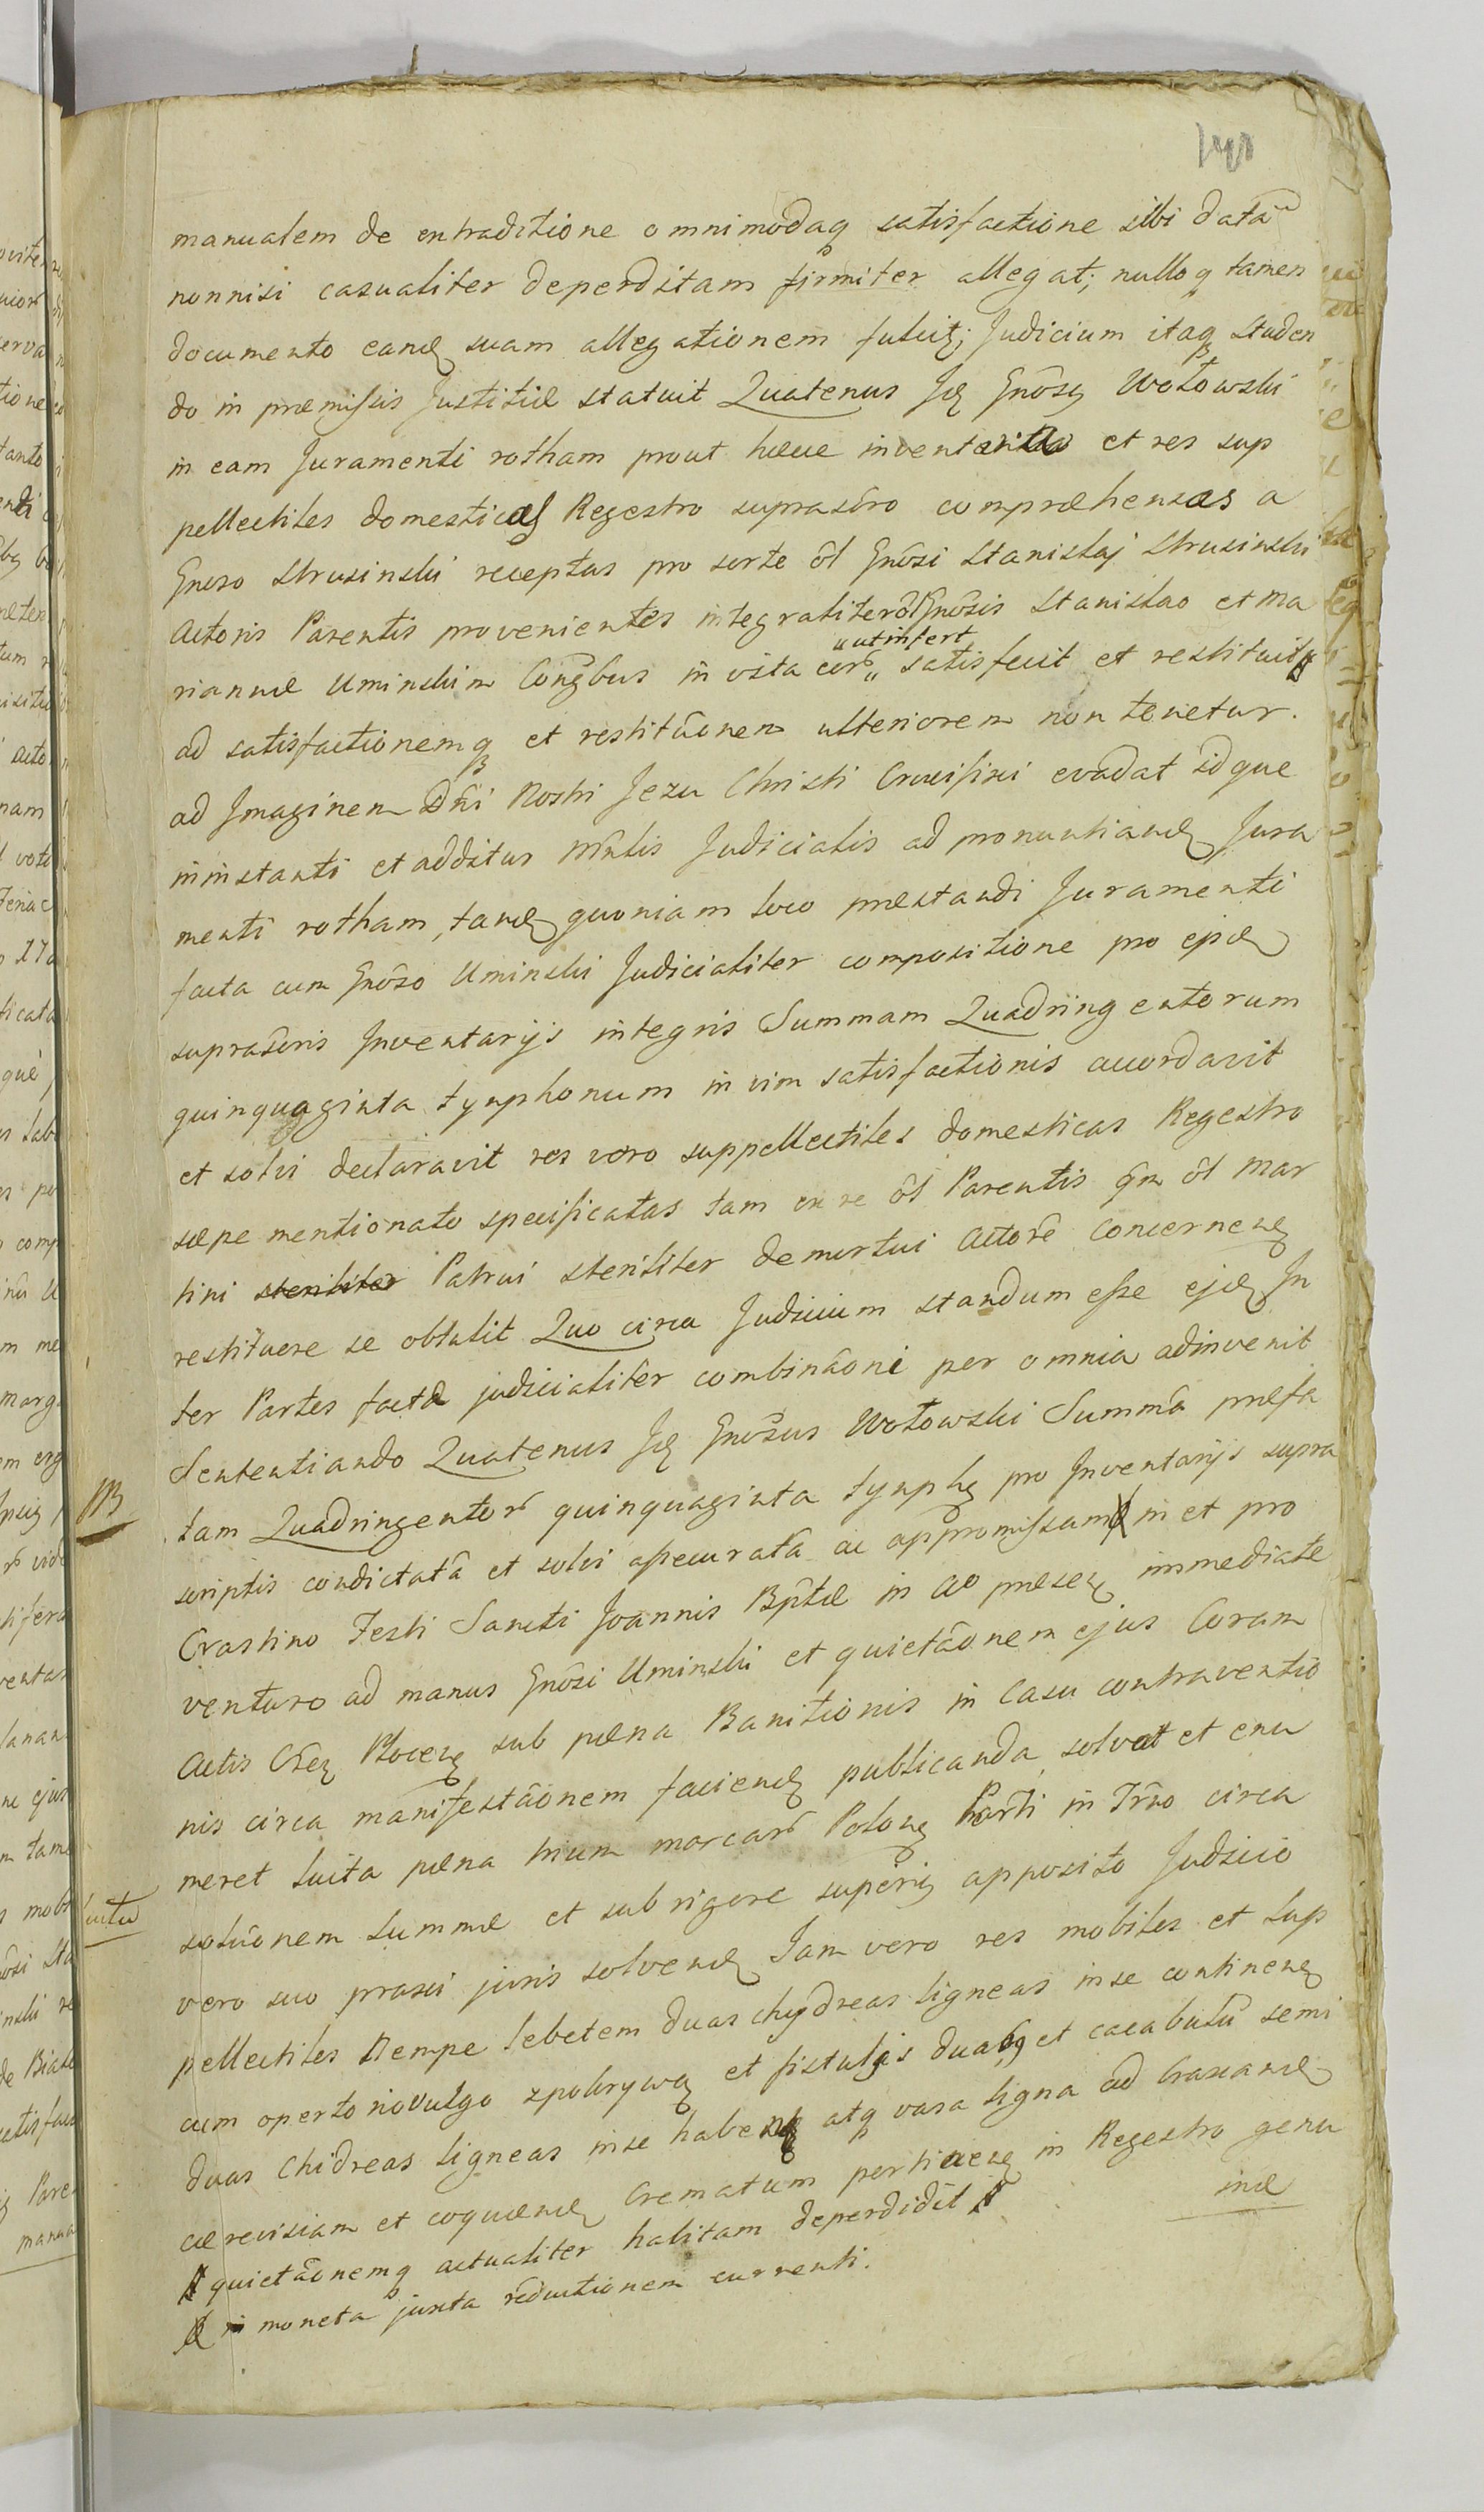 140
manualem de extraditione omnimodaq satisfactione sibi datã
nonnisi casualiter deperditam firmiter allegat; nulloq tamen
documento eand suam allegationem fulcit; Judicium itaq studen
do in præmissis Justitiæ statuit Quatenus Jd Gnõsg Wołowski
in eam Juramenti rotham prout hæce inventaria et res sup
pellectiles domesticas Regestro suprascro compræhensas a
Gnoso Strusinski receptas pro sorte ol Gnõsi Stanislaj Strusinski
Actoris Parentis provenientes integraliter ol Gnosis Stanislao et Ma
riannæ Uminskim Congbus in vita eor̃ „ut infert„ satisfecit et restituit
ad satisfactionemq et restitãonem ulteriorem non tenetur.
ad Imaginem Dni Nostri Jezu Christi Crucifixi evadat idque
in instanti et additus Mnlis Judicialis ad pronuntiand Jura
menti rotham, tand quoniam loco præstandi Juramenti
facta cum Gnõso Uminski Judicialiter compositione pro ejsd
suprascris Inventarijs integris Summam Quadringentorum
quinquaginta tynphonum in vim satisfactionis accordavit
et solvi declaravit res vero suppellectiles domesticas Regestro
sæpe mentionato specificatas tam ex re ol Parentis qm ol Mar
tini steriliter Patrui steriliter demortui Actorẽ concernen
restituere se obtulit Quo circa Judicium standum esse ejd In
ter Partes factæ judicialiter combinãoni per omnia adinvenit
Sententiando Quatenus Jd Gnõsus Wołowski Summã præfa
tam Quadringentor̃ quinquaginta tynph pro Inventarijs supra
scriptis condictatã et solvi assecuratã ac appromissam in et pro
Crastino Festi Sancti Joannis Bptæ in Ao præsen immediate
venturo ad manus Gnõsi Uminski et quietãonem ejus Coram
Actis Cren Plocen sub pæna Banitionis in Casu contraventio
nis circa manifestãonem faciend publicanda solvat et enu
meret luita pæna trium marcar̃ Polon Parti in Trno circa
solũonem summæ et sub rigore superi apposito Judicio
vero suo prasci juris solvend Jam vero res mobiles et sup
pellectiles Nempe lebetem duas chydreas ligneas in se continen
cum opertorio vulgo zpokrywą et fistulis duabq et cacabulũ semi
duas Chidreas ligneas in se haben atq vasa ligna ad Craxand
cærevisiam et coquend Crematum pertinen in Regestro genu
inæ
quietãonemq actualiter habitam deperdidit
in moneta juxta reductionem currenti.
NB
luita